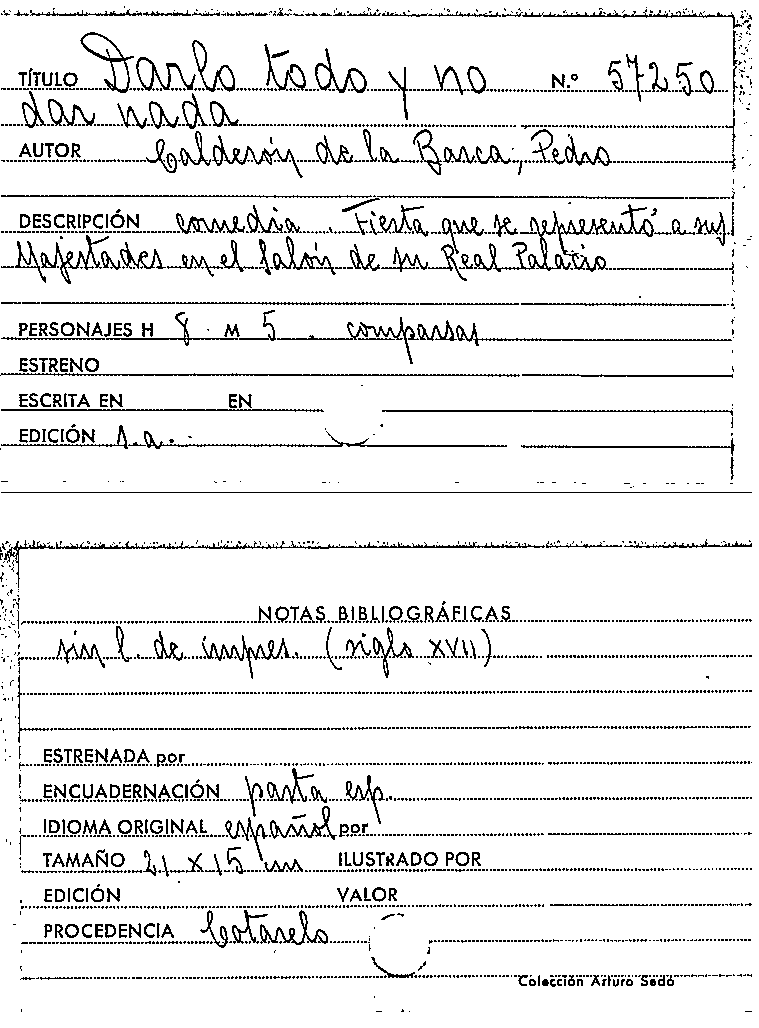 TÍTULO Darlo todo y no N.º 57250
dar nada
AUTOR Calderón de la Barca, Pedro
DESCRIPCIÓN comedia. Fiesta que se representó a sus
Majestades en el Salón de su Real Palacio
PERSONAJES H 8 M 5. comparsas
ESTRENO
ESCRITA EN EN
EDICIÓN s.a.
NOTAS BIBLIOGRÁFICAS
sin l. de impres. (siglo XVII)
ESTRENADA por
ENCUADERNACIÓN pasta esp.
IDIOMA ORIGINAL español por
TAMAÑO 21 x 15 cm ILUSTRADO POR
EDICIÓN VALOR
PROCEDENCIA Cotarelo
Colección Arturo Sedó